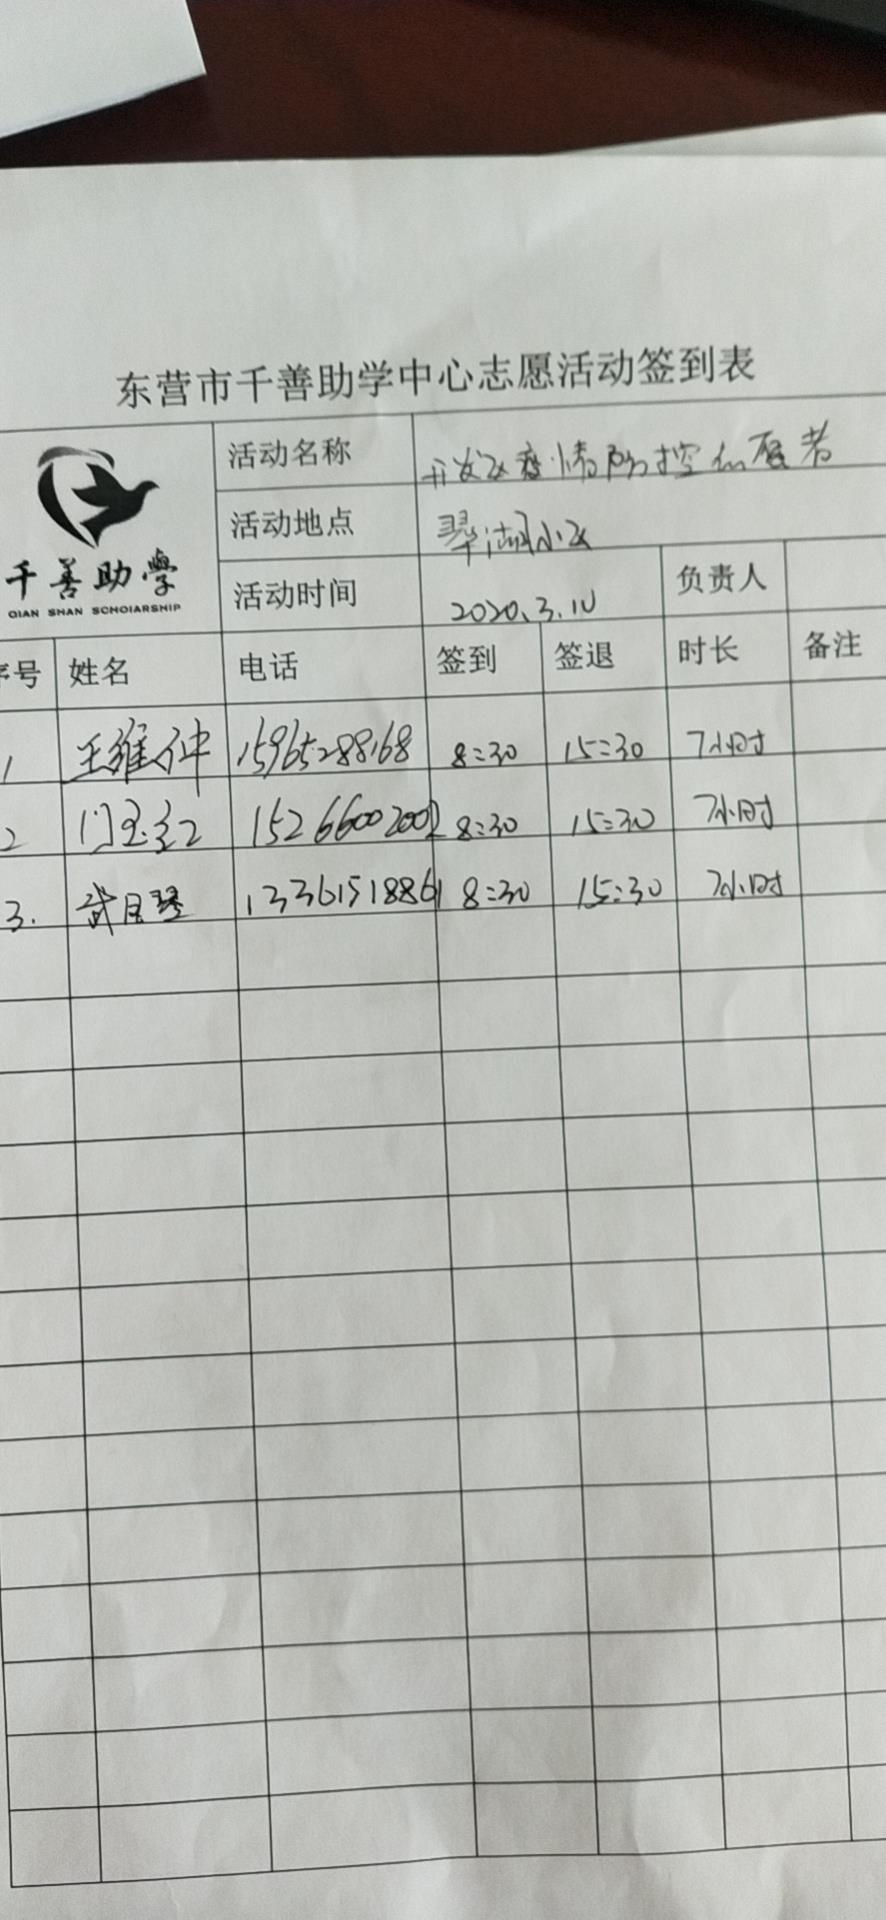 东营市千善助学中心志愿活动签到表
千善助學
QIAN SHAN SCHOIARSHIP
活动名称 开发区疫情防控志愿者
活动地点 翠湖小区
活动时间 2020.3.10 负责人
序号 姓名 电话 签到 签退 时长 备注
1 王维仲 15965288168 8:30 15:30 7小时
2 门玉红 15266002002 8:30 15:30 7小时
3. 武 琴 13361518861 8:30 15:30 7小时